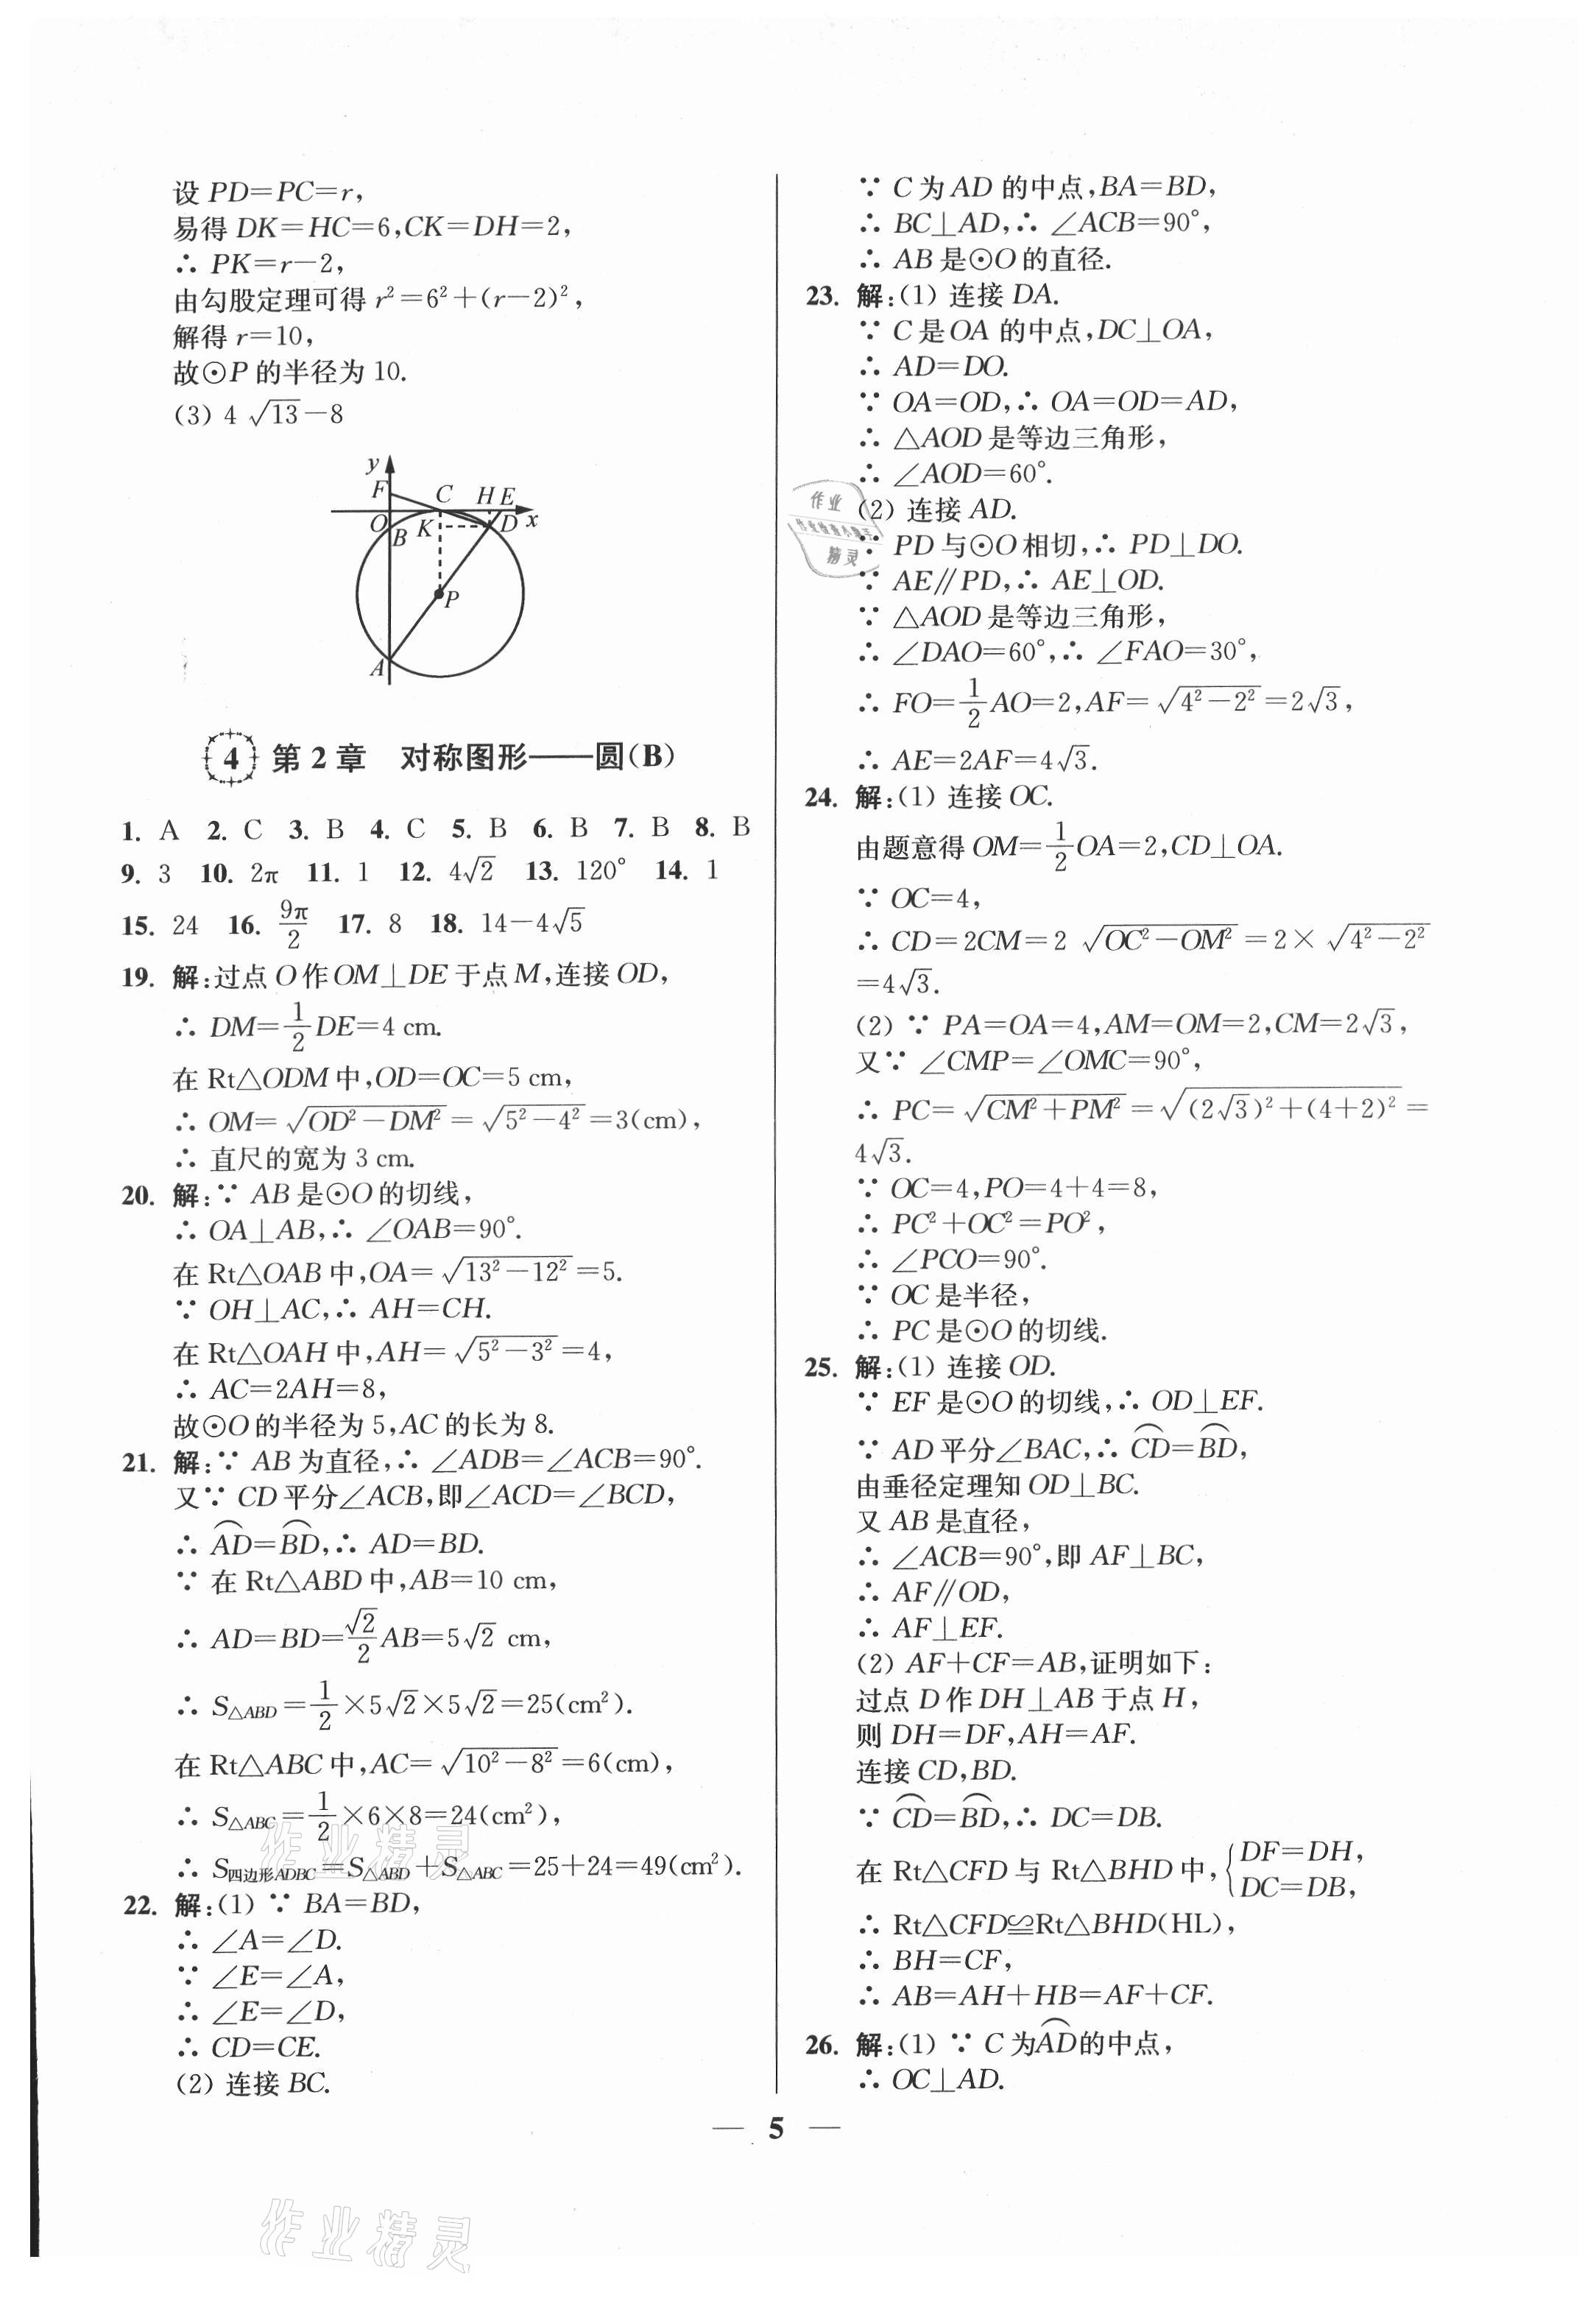 设 PD=PC=r,
易得 DK=HC=6,CK=DH=2,
∴ PK=r-2,
由勾股定理可得 r²=6²+(r-2)²,
解得 r=10,
故⊙P 的半径为 10.
(3) 4√13-8
y
F
C
H E
O
B
K
D
x
P
A
4 第 2 章 对称图形——圆(B)
1. A 2. C 3. B 4. C 5. B 6. B 7. B 8. B
9. 3 10. 2π 11. 1 12. 4√2 13. 120° 14. 1
15. 24 16. 9π/2 17. 8 18. 14-4√5
19. 解:过点 O 作 OM⊥DE 于点 M,连接 OD,
∴ DM=1/2 DE=4 cm.
在 Rt△ODM 中,OD=OC=5 cm,
∴ OM=√(OD²-DM²)=√(5²-4²)=3(cm),
∴ 直尺的宽为 3 cm.
20. 解:∵ AB 是⊙O 的切线,
∴ OA⊥AB,∴ ∠OAB=90°.
在 Rt△OAB 中,OA=√(13²-12²)=5.
∵ OH⊥AC,∴ AH=CH.
在 Rt△OAH 中,AH=√(5²-3²)=4,
∴ AC=2AH=8,
故⊙O 的半径为 5,AC 的长为 8.
21. 解:∵ AB 为直径,∴ ∠ADB=∠ACB=90°.
又∵ CD 平分∠ACB,即∠ACD=∠BCD,
∴ ⌒AD=⌒BD,∴ AD=BD.
∵ 在 Rt△ABD 中,AB=10 cm,
∴ AD=BD=√2/2 AB=5√2 cm,
∴ S△ABD=1/2×5√2×5√2=25(cm²).
在 Rt△ABC 中,AC=√(10²-8²)=6(cm),
∴ S△ABC=1/2×6×8=24(cm²),
∴ S四边形ADBC=S△ABD+S△ABC=25+24=49(cm²).
22. 解:(1) ∵ BA=BD,
∴ ∠A=∠D.
∵ ∠E=∠A,
∴ ∠E=∠D,
∴ CD=CE.
(2) 连接 BC.
∵ C 为 AD 的中点,BA=BD,
∴ BC⊥AD,∴ ∠ACB=90°,
∴ AB 是⊙O 的直径.
23. 解:(1) 连接 DA.
∵ C 是 OA 的中点,DC⊥OA,
∴ AD=DO.
∵ OA=OD,∴ OA=OD=AD,
∴ △AOD 是等边三角形,
∴ ∠AOD=60°.
(2) 连接 AD.
∵ PD 与⊙O 相切,∴ PD⊥DO.
∵ AE∥PD,∴ AE⊥OD.
∵ △AOD 是等边三角形,
∴ ∠DAO=60°,∴ ∠FAO=30°,
∴ FO=1/2 AO=2,AF=√(4²-2²)=2√3,
∴ AE=2AF=4√3.
24. 解:(1) 连接 OC.
由题意得 OM=1/2 OA=2,CD⊥OA.
∵ OC=4,
∴ CD=2CM=2√(OC²-OM²)=2×√(4²-2²)
=4√3.
(2) ∵ PA=OA=4,AM=OM=2,CM=2√3,
又∵ ∠CMP=∠OMC=90°,
∴ PC=√(CM²+PM²)=√((2√3)²+(4+2)²)=
4√3.
∵ OC=4,PO=4+4=8,
∴ PC²+OC²=PO²,
∴ ∠PCO=90°.
∵ OC 是半径,
∴ PC 是⊙O 的切线.
25. 解:(1) 连接 OD.
∵ EF 是⊙O 的切线,∴ OD⊥EF.
∵ AD 平分∠BAC,∴ ⌒CD=⌒BD,
由垂径定理知 OD⊥BC.
又 AB 是直径,
∴ ∠ACB=90°,即 AF⊥BC,
∴ AF∥OD,
∴ AF⊥EF.
(2) AF+CF=AB,证明如下:
过点 D 作 DH⊥AB 于点 H,
则 DH=DF,AH=AF.
连接 CD,BD.
∵ ⌒CD=⌒BD,∴ DC=DB.
在 Rt△CFD 与 Rt△BHD 中,{DF=DH,
DC=DB,
∴ Rt△CFD≌Rt△BHD(HL),
∴ BH=CF,
∴ AB=AH+HB=AF+CF.
26. 解:(1) ∵ C 为⌒AD的中点,
∴ OC⊥AD.
— 5 —
作业
精灵
作业精灵
作业精灵